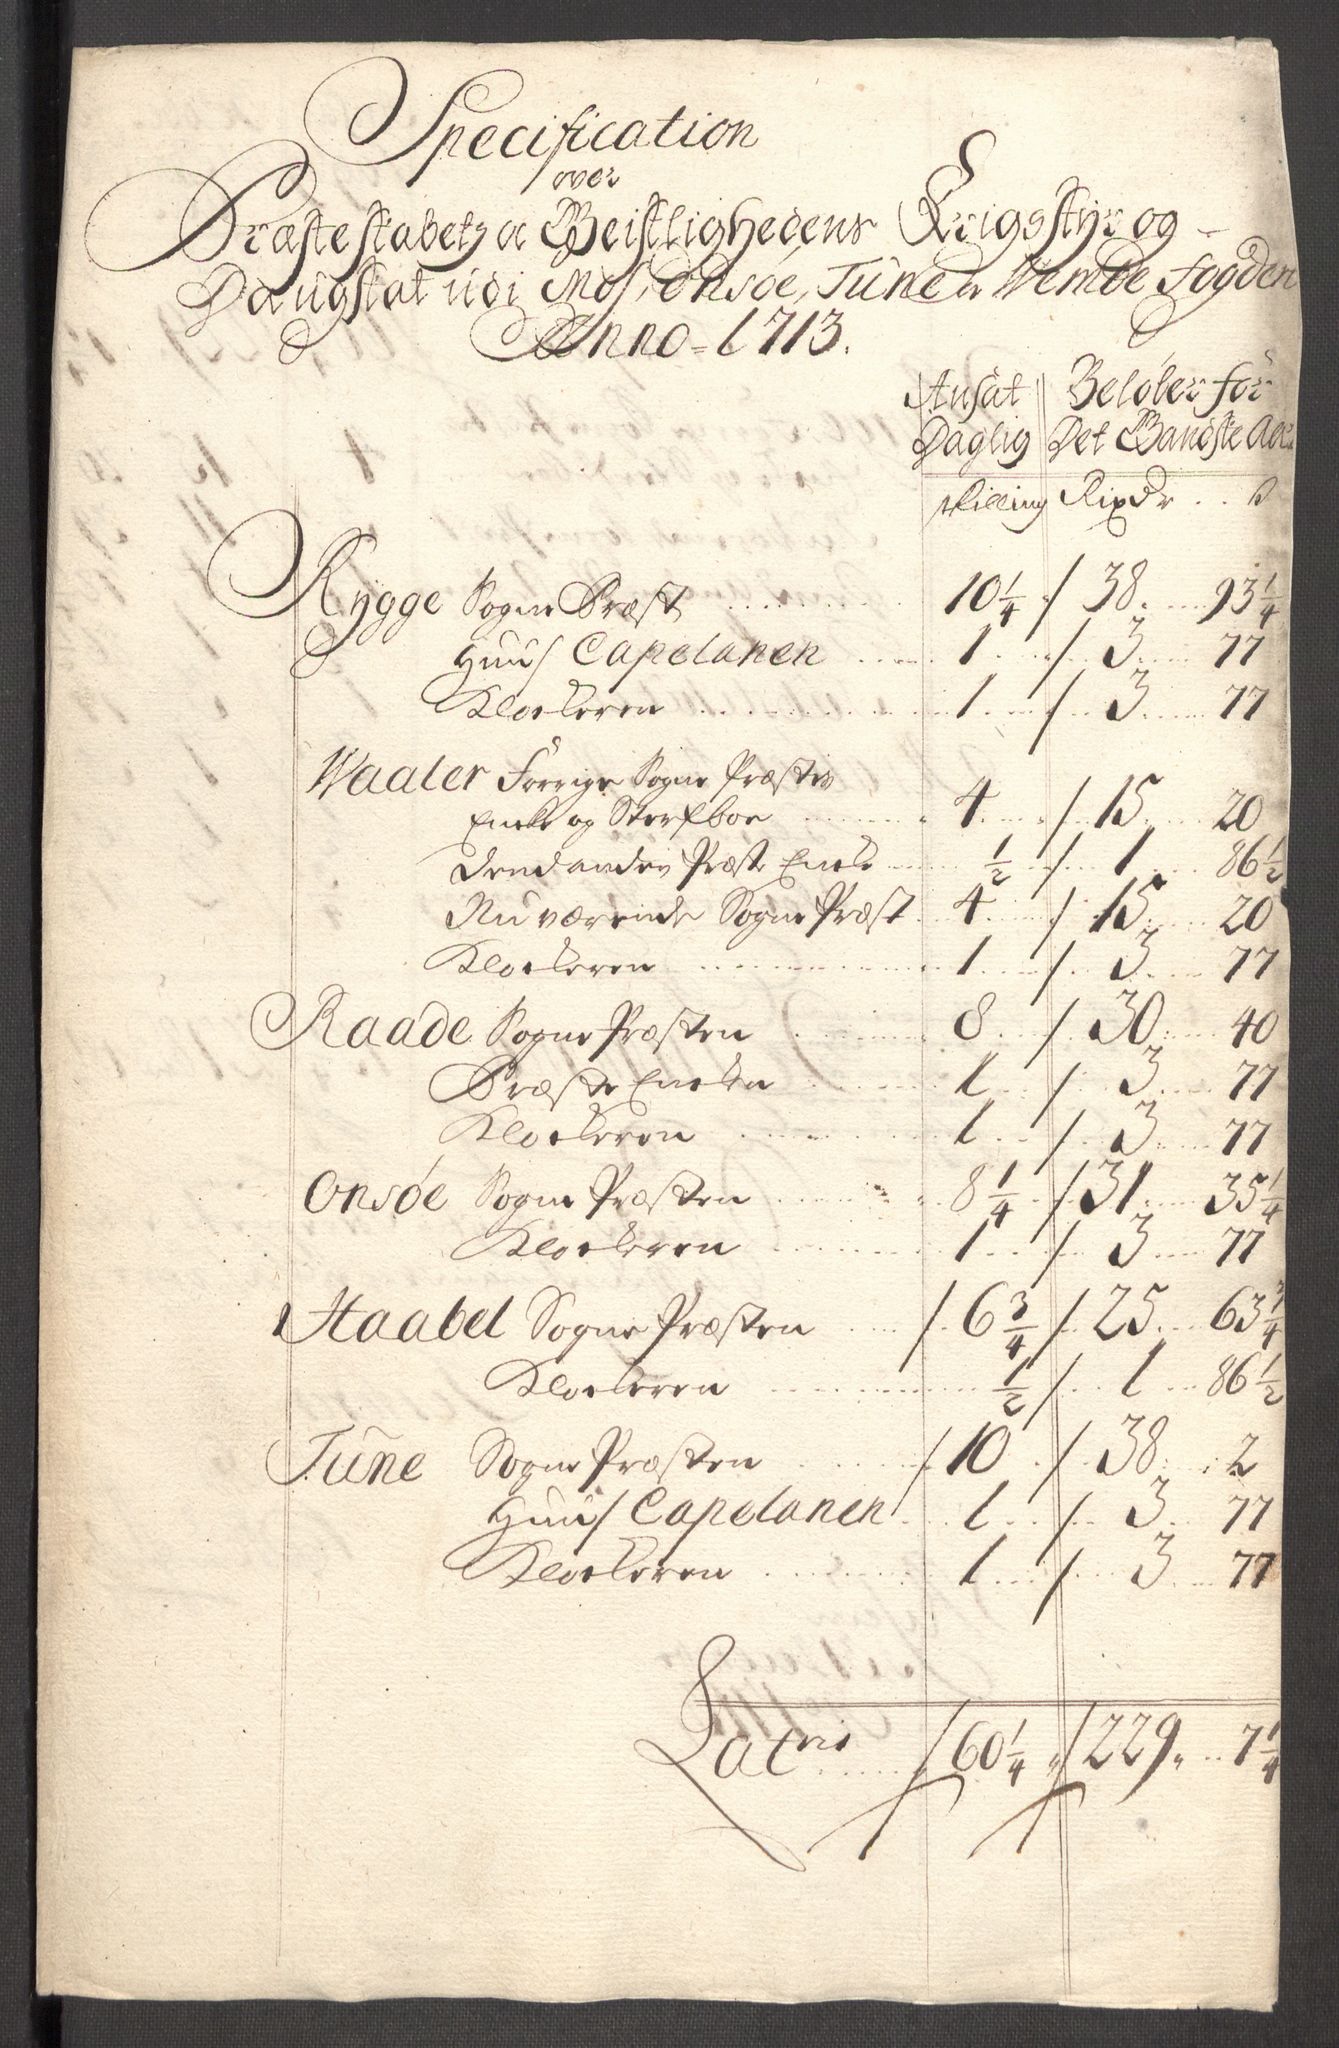 Specification
over
Præsteskabetz oc Geistlighedens Krigsstyr og
Daugskat udi Mos, Onsøe, Tune oc Wemde fogden
Anno = 1713.
Ansat Beløber for
Daglig Det Gandske Aar
skilling Rixdr .. s
Rygge Sogne Præst 10 1/4 / 38. 93 1/4
Huus Capelanen 1 / 3 77
Klockeren 1 / 3 77
Waaler Forrige Sogne Præstes
Encke og Sterfboe 4 / 15 20
Dend andes Præste Encke 1/2 / 1 86 1/2
Nu værende Sogne Præst 4 / 15 20
Klockeren 1 / 3 77
Raade Sogne Præsten 8 / 30 40
Præste Encken 1 / 3 77
Klockeren 1 / 3 77
Onsøe Sogne Præsten 8 1/4 / 31 35 1/4
Klockeren 1 / 3 77
Haabel Sogne Præsten / 6 3/4 / 25 63 3/4
Klockeren 1/2 / 1 86 1/2
Tune Sogne Præsten / 10 / 38 2
Huus Capelanen 1 / 3 77
Klockeren 1 / 3 77
Latris / 60 1/4 / 229 .. 7 1/4